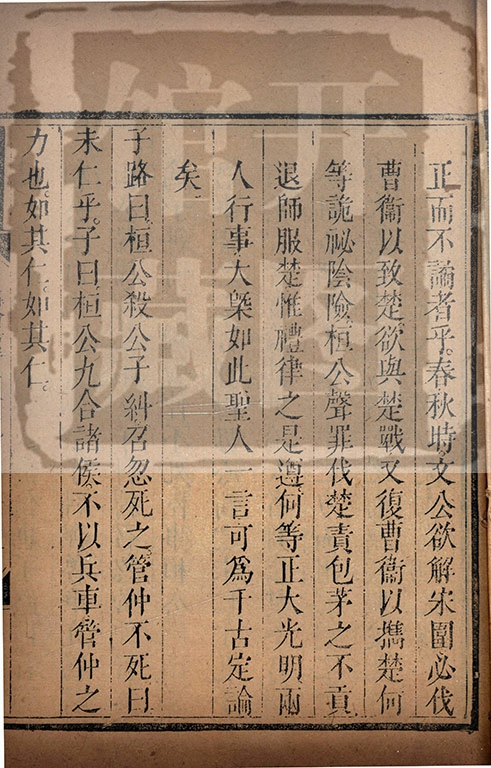 正而不譎者乎。春秋時。文公欲解宋圍必伐
曹衞以致楚。欲與楚戰又復曹衞以攜楚何
等詭祕陰險桓公聲罪伐楚責包茅之不貢
退師服楚惟禮律之是遵何等正大光明兩
人行事大槩如此聖人一言可爲千古定論
矣
子路曰。桓公殺公子糾召忽死之。管仲不死曰
未仁乎。子曰桓公九合諸侯不以兵車管仲之
力也。如其仁。如其仁。